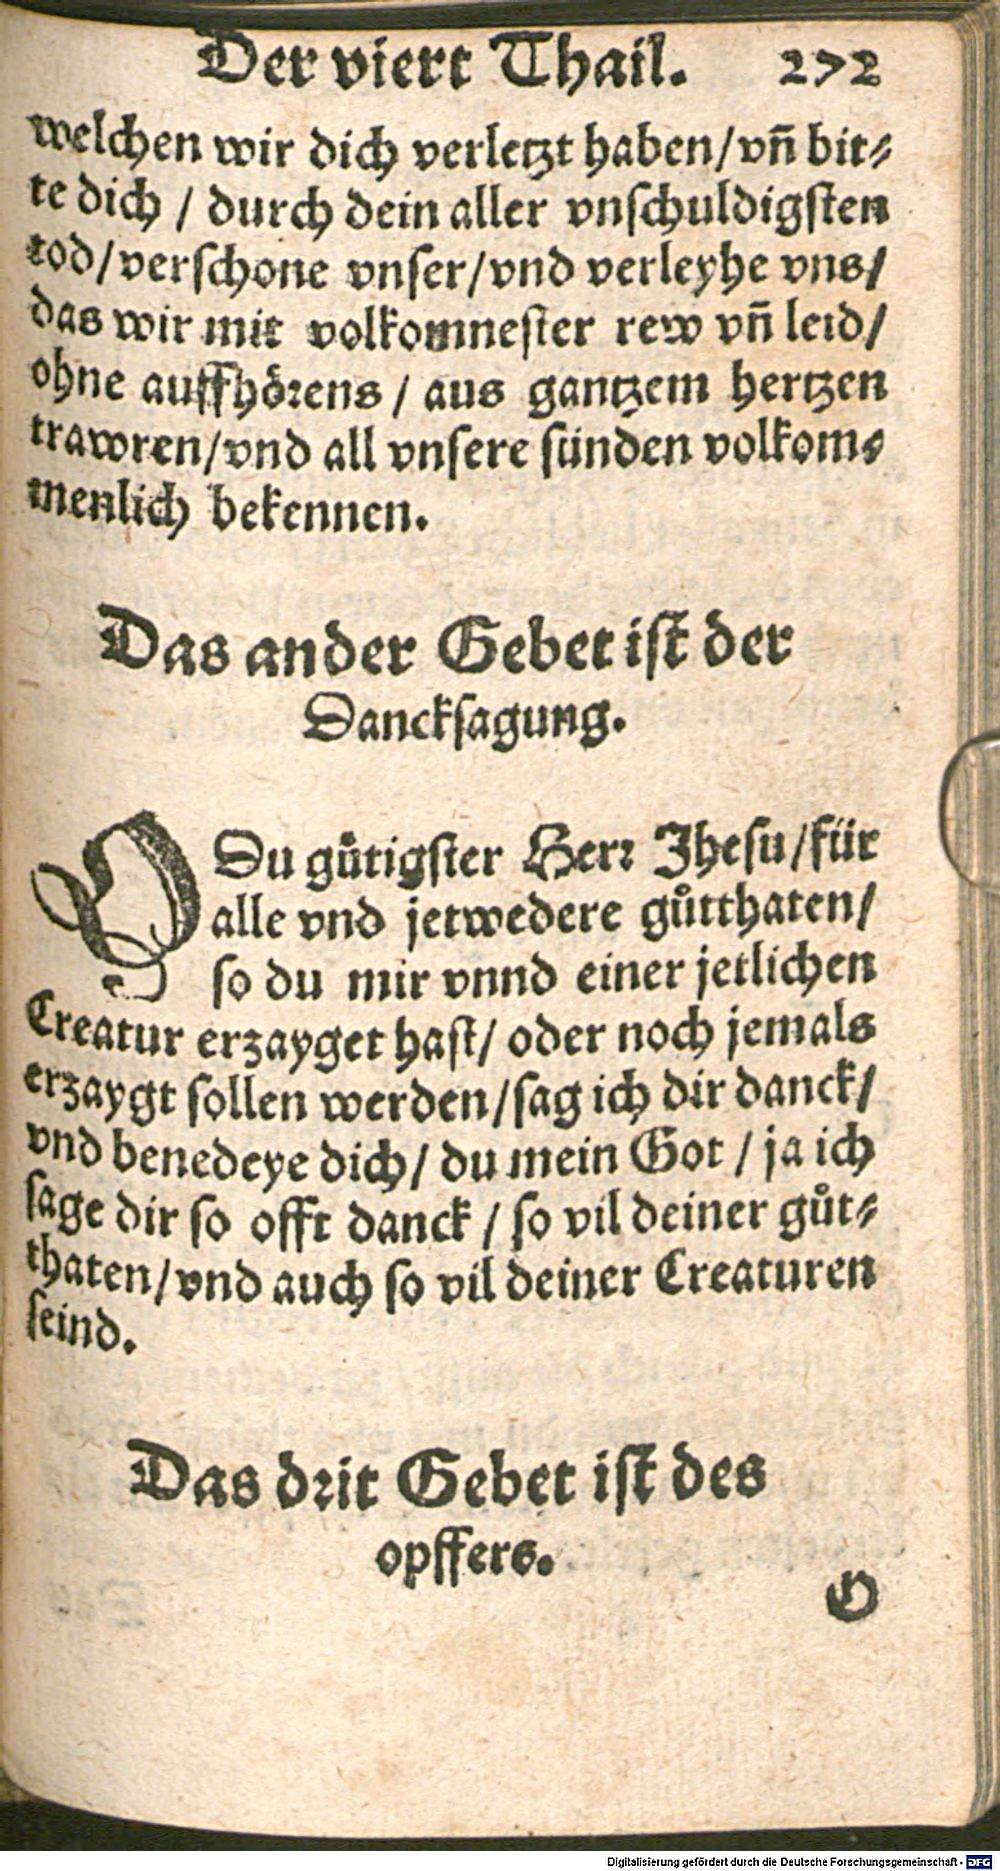 Der viert Thail. 272
welchen wir dich verletzt haben/vñ bit⸗
te dich / durch dein aller vnſchuldigſten
tod/verſchone vnſer/vnd verleyhe vns/
das wir mit volkomneſter rew vñ leid/
ohne auffhörens / aus gantzem hertzen
trawren/vnd all vnſere ſünden volkom⸗
menlich bekennen.
Das ander Gebet iſt der
Danckſagung.
O Du gůtigſter Herr Jheſu/für
alle vnd jetwedere gůtthaten/
ſo du mir vnnd einer jetlichen
Creatur erzayget haſt/ oder noch jemals
erzaygt ſollen werden/ſag ich dir danck/
vnd benedeye dich/ du mein Got / ja ich
ſage dir ſo offt danck / ſo vil deiner gůt⸗
thaten/vnd auch ſo vil deiner Creaturen
ſeind.
Das drit Gebet iſt des
opffers.
O
Digitalisierung gefördert durch die Deutsche Forschungsgemeinschaft - DFG